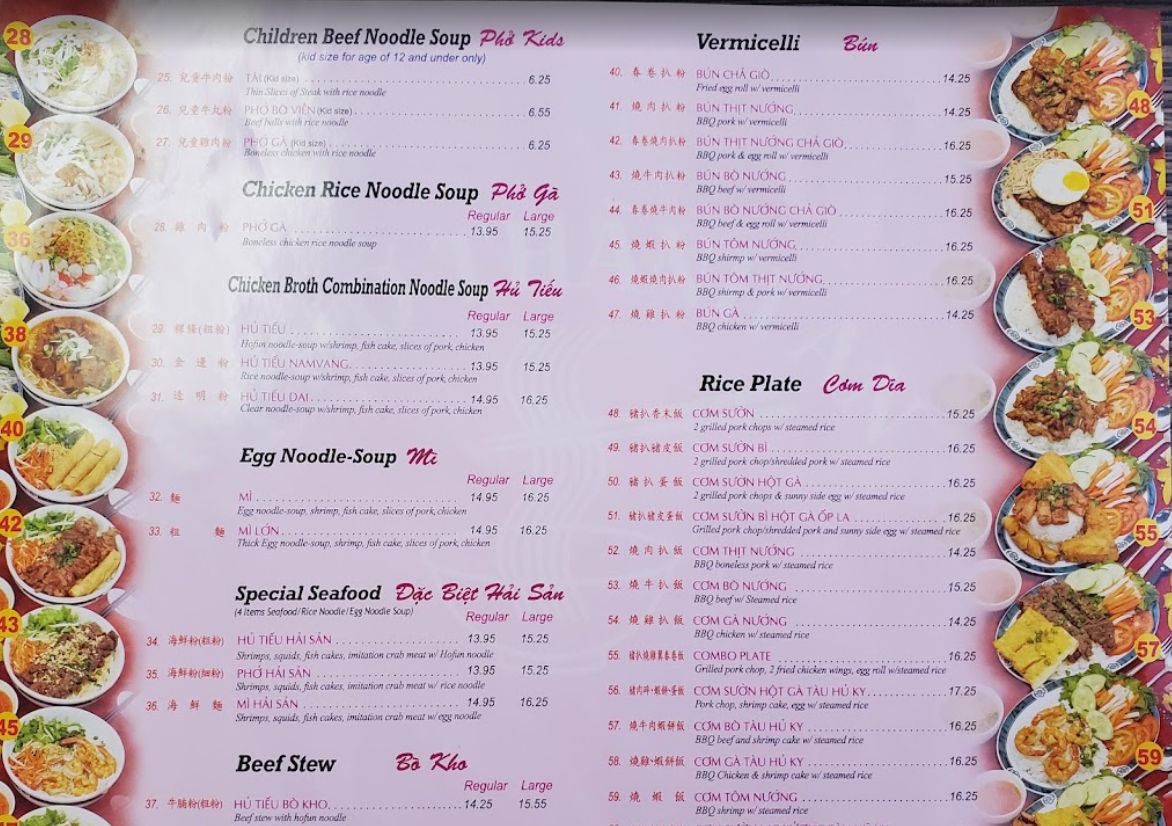 Children Beef Noodle Soup Phở Kids
(kid size for age of 12 and under only)
25. 兒童牛肉粉 TÁI (Kid size) 6.25
Thin Slices of Steak with rice noodle
26. 兒童牛丸粉 PHỞ BÒ VIÊN (Kid size) 6.55
Beef balls with rice noodle
27. 兒童雞肉粉 PHỞ GÀ (Kid size) 6.25
Boneless chicken with rice noodle
Chicken Rice Noodle Soup Phở Gà
Regular Large
28. 雞肉粉 PHỞ GÀ 13.95 15.25
Boneless chicken rice noodle soup
Chicken Broth Combination Noodle Soup Hủ Tiếu
Regular Large
29. 粿條(粗粉) HỦ TIẾU 13.95 15.25
Hofun noodle-soup w/shrimp, fish cake, slices of pork, chicken
30. 金邊粉 HỦ TIẾU NAMVANG 13.95 15.25
Rice noodle-soup w/shrimp, fish cake, slices of pork, chicken
31. 透明粉 HỦ TIẾU DAI 14.95 16.25
Clear noodle-soup w/shrimp, fish cake, slices of pork, chicken
Egg Noodle-Soup Mì
Regular Large
32. 麵 MÌ 14.95 16.25
Egg noodle-soup, shrimp, fish cake, slices of pork, chicken
33. 粗麵 MÌ LỚN 14.95 16.25
Thick Egg noodle-soup, shrimp, fish cake, slices of pork, chicken
Special Seafood Đặc Biệt Hải Sản
(4 Items Seafood/Rice Noodle/Egg Noodle Soup)
Regular Large
34. 海鮮粉(粗粉) HỦ TIẾU HẢI SẢN 13.95 15.25
Shrimps, squids, fish cakes, imitation crab meat w/ Hofun noodle
35. 海鮮粉(細粉) PHỞ HẢI SẢN 13.95 15.25
Shrimps, squids, fish cakes, imitation crab meat w/ rice noodle
36. 海鮮麵 MÌ HẢI SẢN 14.95 16.25
Shrimps, squids, fish cakes, imitation crab meat w/ egg noodle
Beef Stew Bò Kho
Regular Large
37. 牛腩粉(粗粉) HỦ TIẾU BÒ KHO 14.25 15.55
Beef stew with hofun noodle
Vermicelli Bún
40. 春卷扒粉 BÚN CHẢ GIÒ 14.25
Fried egg roll w/ vermicelli
41. 燒肉扒粉 BÚN THỊT NƯỚNG 14.25
BBQ pork w/ vermicelli
42. 春卷燒肉扒粉 BÚN THỊT NƯỚNG CHẢ GIÒ 16.25
BBQ pork & egg roll w/ vermicelli
43. 燒牛肉扒粉 BÚN BÒ NƯỚNG 15.25
BBQ beef w/ vermicelli
44. 春卷燒牛肉粉 BÚN BÒ NƯỚNG CHẢ GIÒ 16.25
BBQ beef & egg roll w/ vermicelli
45. 燒蝦扒粉 BÚN TÔM NƯỚNG 16.25
BBQ shirmp w/ vermicelli
46. 燒蝦燒肉扒粉 BÚN TÔM THỊT NƯỚNG 16.25
BBQ shirmp & pork w/ vermicelli
47. 燒雞扒粉 BÚN GÀ 14.25
BBQ chicken w/ vermicelli
Rice Plate Cơm Dĩa
48. 豬扒香末飯 CƠM SƯỜN 15.25
2 grilled pork chops w/ steamed rice
49. 豬扒豬皮飯 CƠM SƯỜN BÌ 16.25
2 grilled pork chop/shredded pork w/ steamed rice
50. 豬扒蛋飯 CƠM SƯỜN HỘT GÀ 16.25
2 grilled pork chops & sunny side egg w/ steamed rice
51. 豬扒豬皮蛋飯 CƠM SƯỜN BÌ HỘT GÀ ỐP LA 16.25
Grilled pork chop/shredded pork and sunny side egg w/ steamed rice
52. 燒肉扒飯 CƠM THỊT NƯỚNG 14.25
BBQ boneless pork w/ steamed rice
53. 燒牛扒飯 CƠM BÒ NƯỚNG 15.25
BBQ beef w/ Steamed rice
54. 燒雞扒飯 CƠM GÀ NƯỚNG 14.25
BBQ chicken w/ steamed rice
55. 豬扒燒雞翼春卷飯 COMBO PLATE 16.25
Grilled pork chop, 2 fried chicken wings, egg roll w/steamed rice
56. CƠM SƯỜN HỘT GÀ TÀU HỦ KY 17.25
Pork chop, shrimp cake, egg w/ steamed rice
57. 燒牛肉蝦餅飯 CƠM BÒ TÀU HỦ KY 16.25
BBQ beef and shrimp cake w/ steamed rice
58. 燒雞蝦餅飯 CƠM GÀ TÀU HỦ KY 16.25
BBQ Chicken & shrimp cake w/ steamed rice
59. 燒蝦飯 CƠM TÔM NƯỚNG 16.25
BBQ shrimp w/ steamed rice
28
29
36
38
40
42
43
45
48
51
53
54
55
57
59